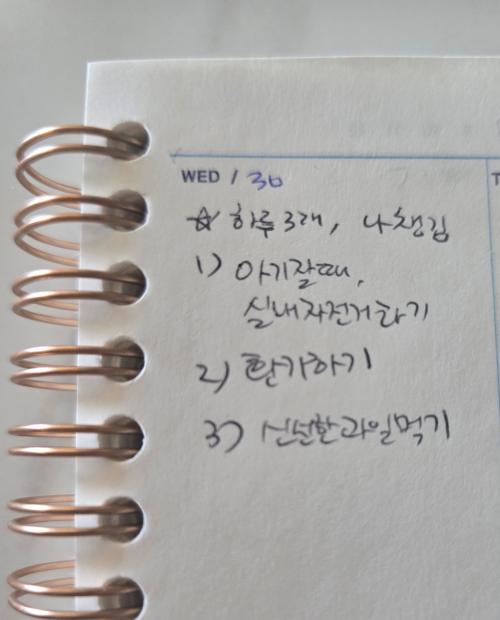 WED / 30
☆ 하루 3개, 나챙김
1) 아기잘때,
실내자전거타기
2) 환기하기
3) 신선한과일먹기
T